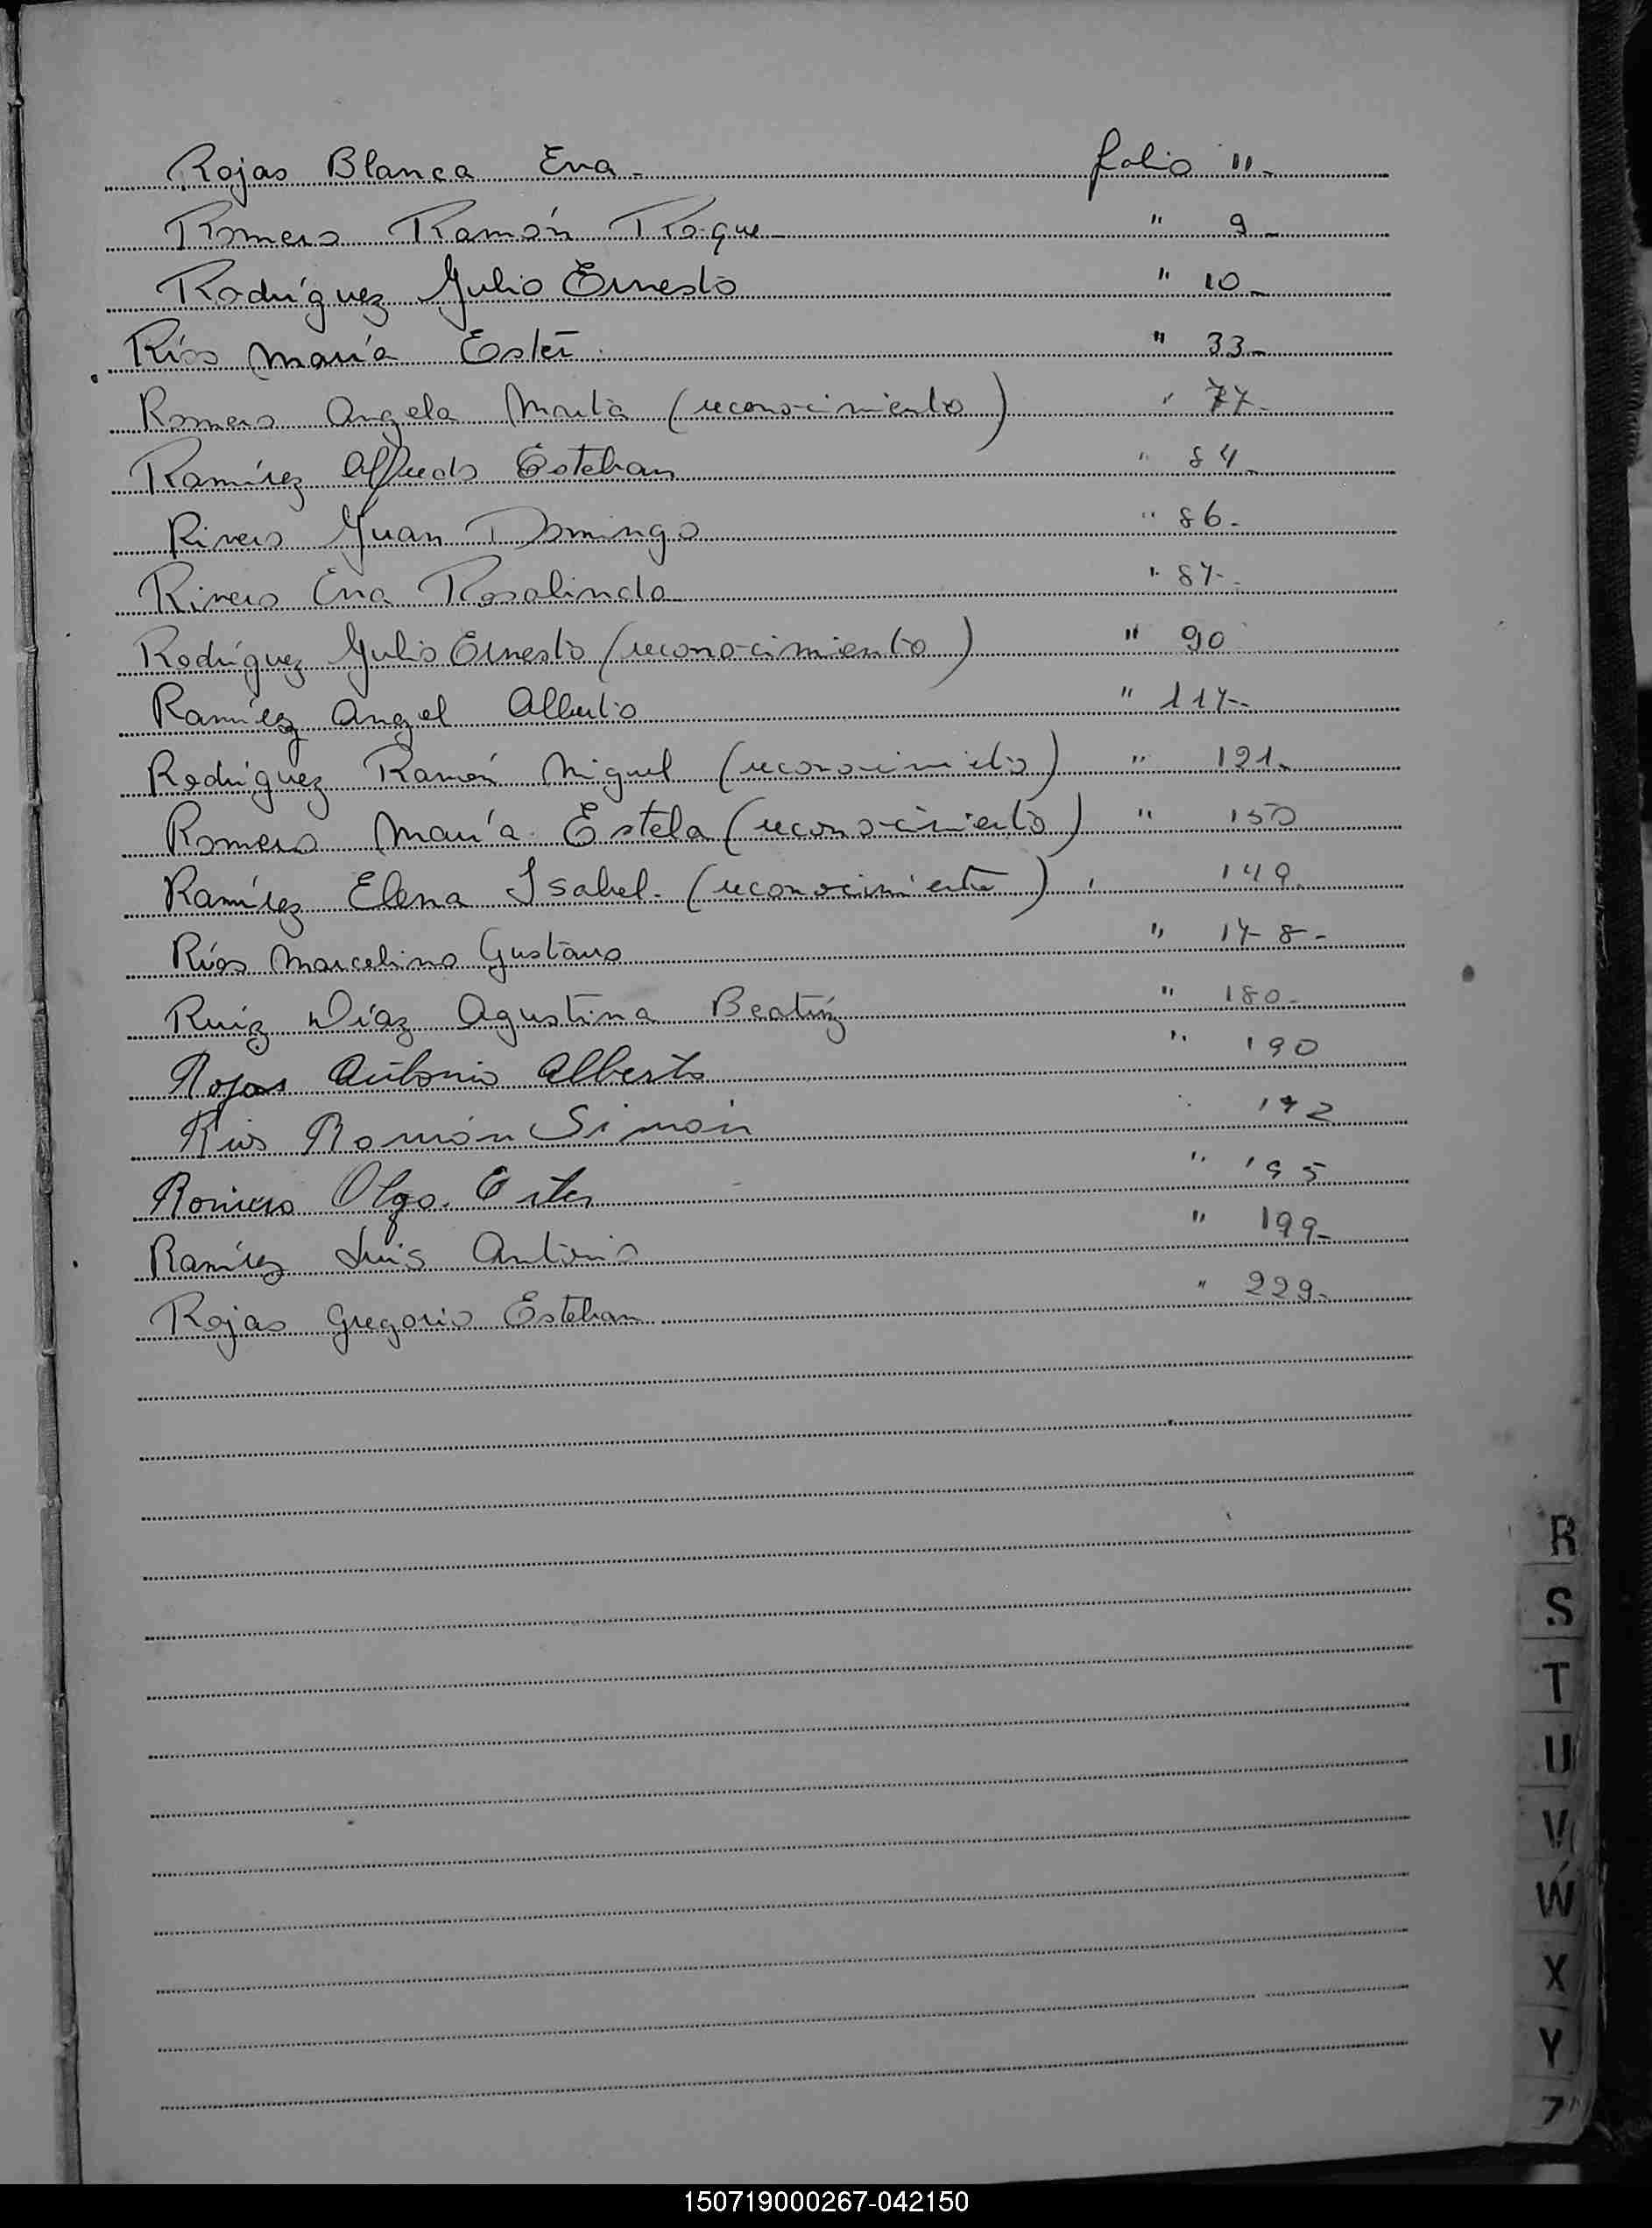 Rojas Blanca Eva - folio 11.
Romero Ramón Roque " 9 -
Rodríguez Julio Ernesto " 10 -
Ríos María Ester " 33 -
Romero Angela Marta (reconocimiento) " 77 -
Ramírez Alfredo Esteban " 84 -
Rivero Juan Domingo " 86 -
Rivero Eva Rosalinda " 87 -
Rodríguez Julio Ernesto (reconocimiento) " 90
Ramírez Angel Alberto " 117 -
Rodríguez Ramón Miguel (reconocimiento) " 121 -
Romero María Estela (reconocimiento) " 150
Ramírez Elena Isabel - (reconocimiento) " 149 -
Ríos Marcelino Gustavo " 178 -
Ruiz Díaz Agustina Beatríz " 180 -
Rojas Antonio Alberto " 190
Rios Ramón Simón " 192
Romero Olga Ester " 195
Ramírez Luis Antonio " 199 -
Rojas Gregorio Esteban " 229 -
R
S
T
U
V
W
X
Y
Z
150719000267-042150